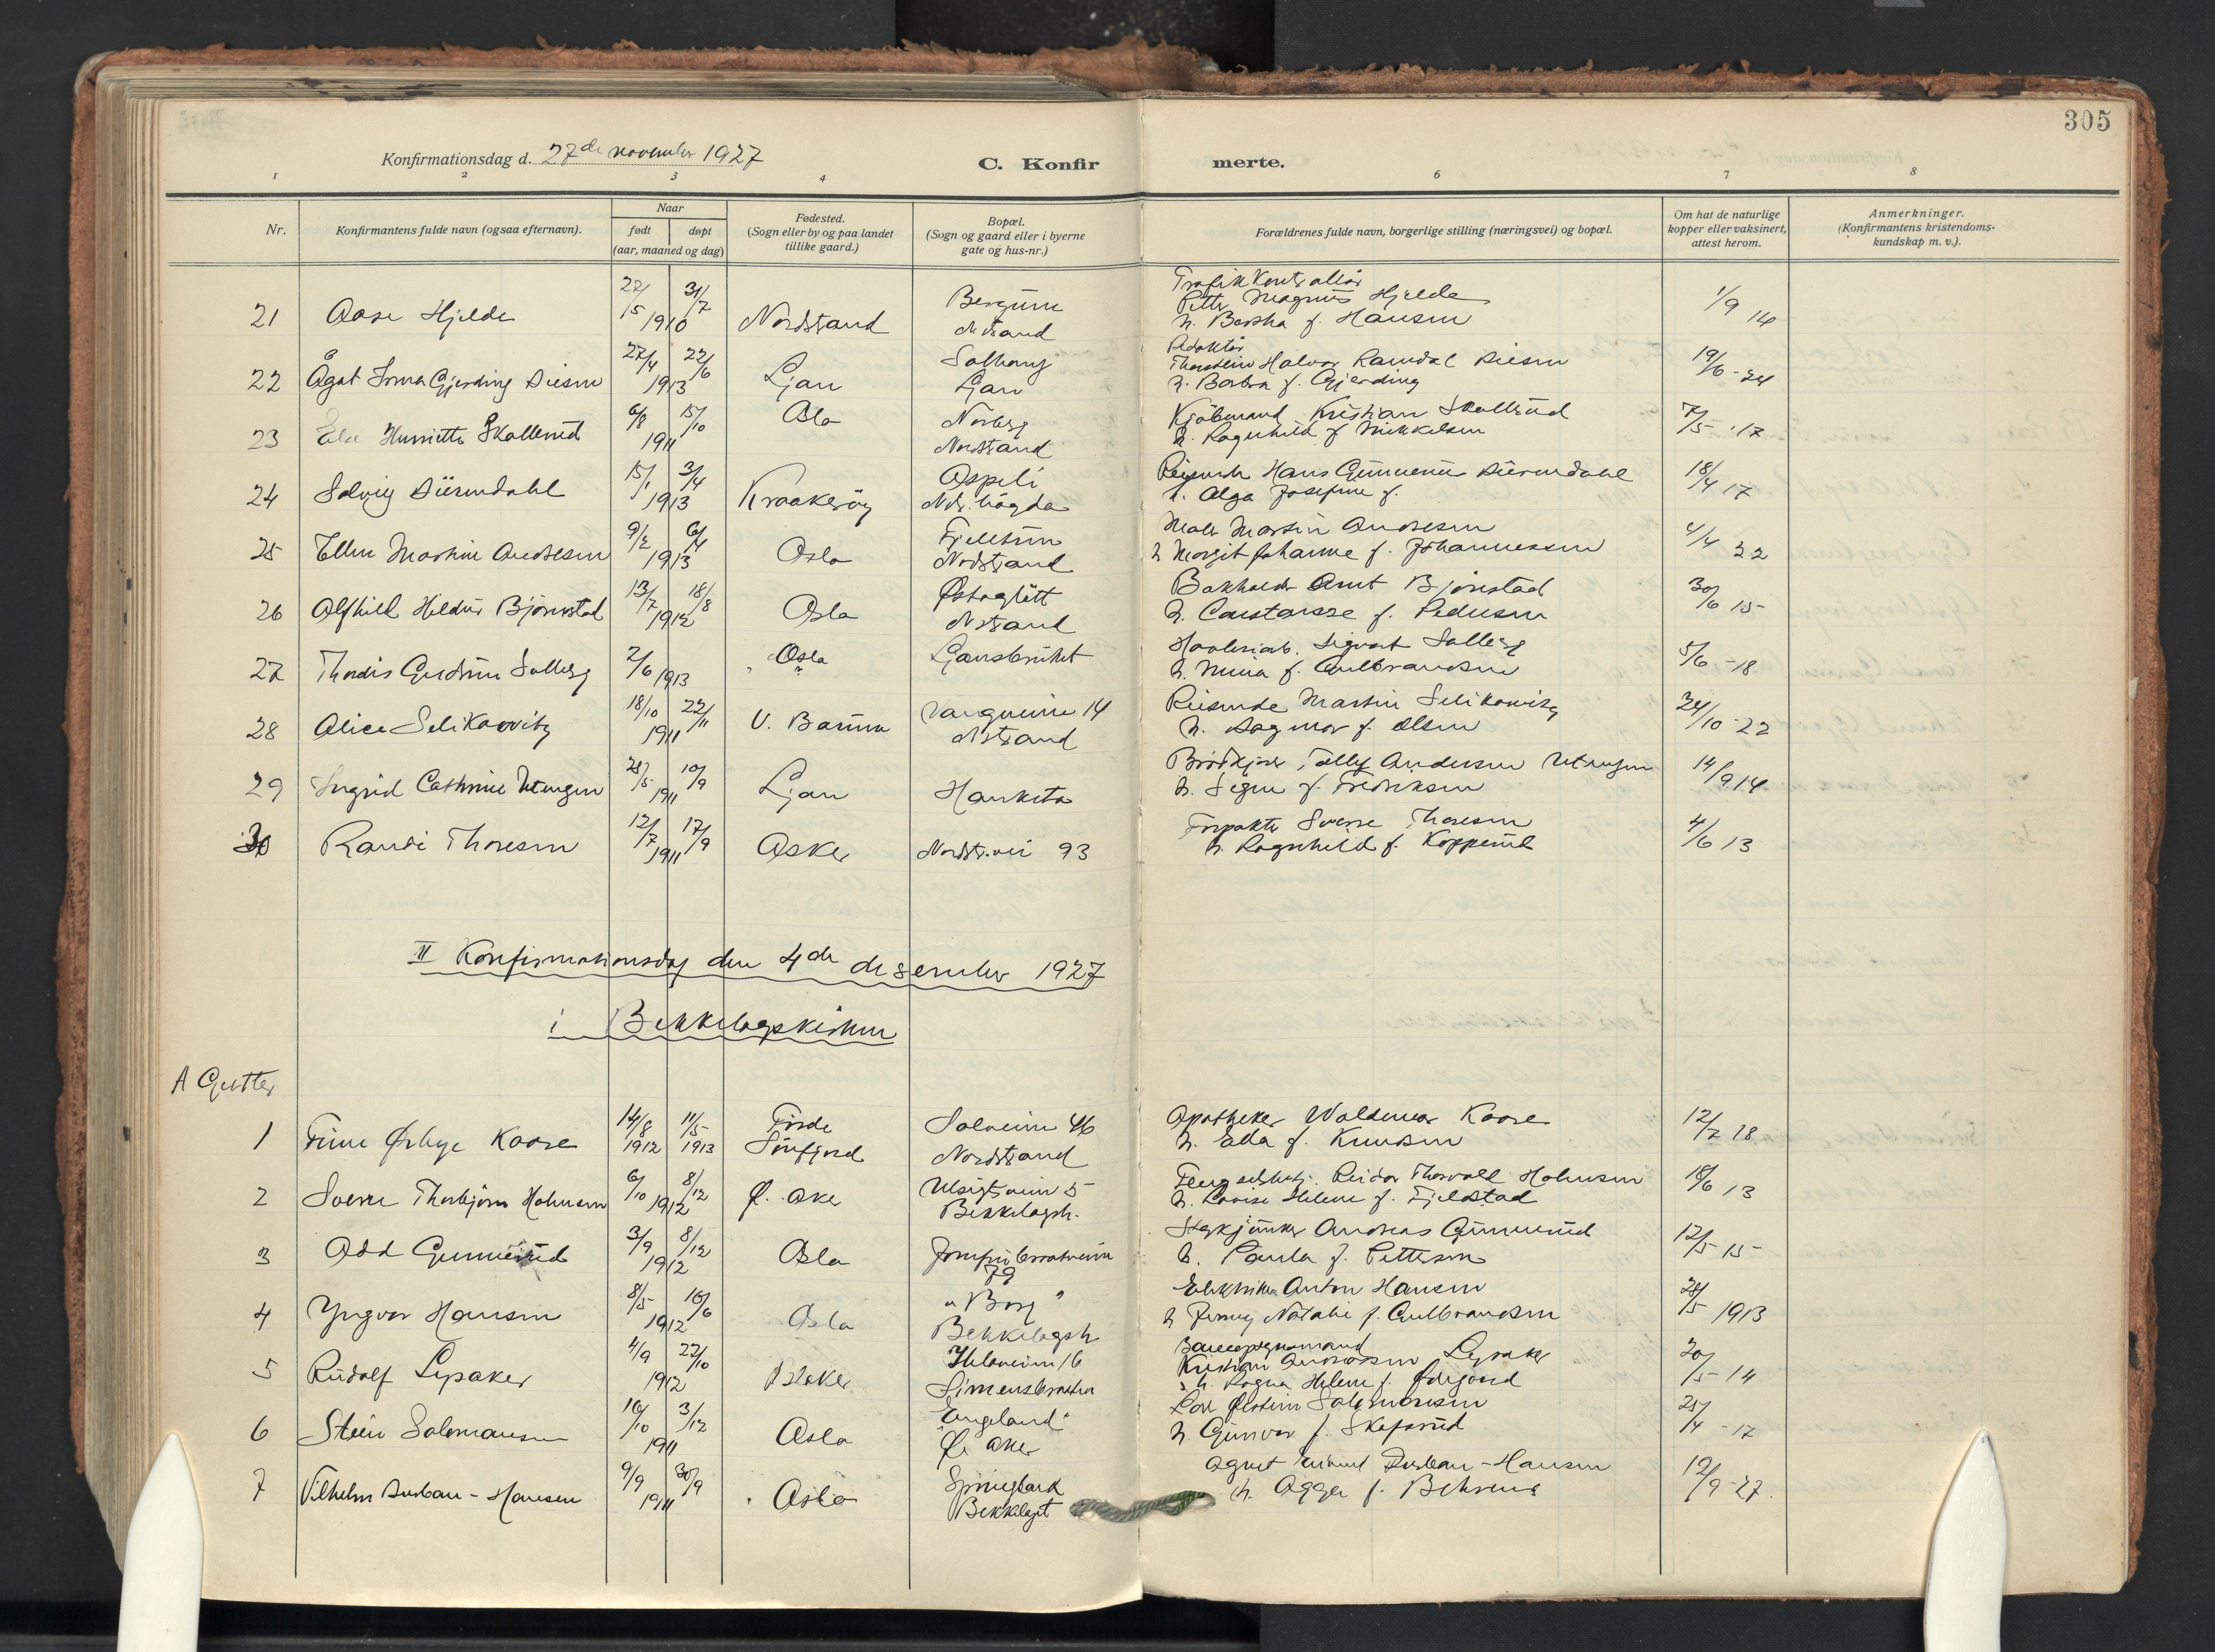 305
Konfirmationsdag d. 27de november 1927
C. Konfirmerte.
1 2 3 4 6 7 8
Nr.
Konfirmantens fulde navn (ogsaa efternavn).
Naar
født døpt
(aar, maaned og dag)
Fødested.
(Sogn eller by og paa landet
tillike gaard.)
Bopæl.
(Sogn og gaard eller i byerne
gate og hus-nr.)
Forældrenes fulde navn, borgerlige stilling (næringsvei) og bopæl.
Om hat de naturlige
kopper eller vaksinert,
attest herom.
Anmerkninger.
(Konfirmantens kristendoms-
kundskap m. v.).
21 Aase Hjelde 22/5 31/7 1910 Nordstrand Bergum Nstrand
Petter Magnus Hjelde
h. Bertha f. Hansen
1/9 14
22 Ågot Irma Gjerding Diesen 27/4 22/6 1913 Ljan Solhaug Ljan
Redaktør
Thorstein Halvor Ramdal Diesen
h. Borbra f. Gjerding
19/6 - 24
23 Henriette Skallerud 6/8 15/10 1911 Oslo Norberg Nordstrand
Kjøbmand Kristian Skallerud
h. Ragnhild f. Mikkelsen
7/5 - 17
24 Solveig Diserudahl 15/1 3/4 1913 Kraakerøy Aspeli Nds. høgda
Hans Gunnerius
h. Olga Josefine f.
18/4 17
25 Ellen Martine Andresen 9/2 6/4 1913 Oslo Nordstrand
Maler Martin Andresen
h. Margit Johanne f. Johannessen
4/4 22
26 Alfhild Hildur Bjørnstad 13/7 18/8 1912 Oslo Nstrand
Bokholder Arnt Bjørnstad
h. Constanse f. Pedersen
30/6 15-
27 Thordis Gudrun Solberg 2/6 1913 Oslo Ljansbruket
Sigvart Solberg
h. Mina f. Gulbrandsen
5/6 - 18
28 Alice Selikowitz 18/10 22/11 1911 V. Bærum 14 Nstrand
Reisende Martin Selikowitz
h. Dagmar f. Olsen
24/10 - 22
29 Ingrid Cathrine Utengen 28/5 10/9 1911 Ljan Hauketo
Brødkjører Tollef Andersen Utengen
h. Signe f. Fredriksen
14/9 14
30 Randi Thoresen 12/7 17/9 1911 Asker Nordstr.vei 93
Forpakter Sverre Thoresen
h. Ragnhild f. Kopperud
4/6 13
II Konfirmationsdag den 4de desember 1927
i Bekkelagskirken
A Gutter
1 Finn Ørbye Kaare 14/8 1912 11/5 1913 Førde Sønfjord Solveien 46 Nordstrand
Apotheker Waldemar Kaare
h. Ella f. Knudsen
12/7 18
2 Sverre Thorbjørn Holmsen 6/10 8/12 1912 Ø. Aker Utsigtsveien 5 Bekkelagsh.
Fengselsbetj. Reidar Thorvald Holmsen
h. Lovise Helene f. Fjeldstad
18/6 13
3 Odd Gunnerud 3/9 8/12 1912 Oslo Jomfrubraatveien 79
Andreas Gunnerud
h. Paula f. Pettersen
12/5 15-
4 Yngvar Hansen 8/5 16/6 1912 Oslo "Borg" Bekkelagsh
Elektriker Anton Hansen
h. Jenny Natalie f. Gulbrandsen
28/5 1913
5 Rudolf Lysaker 4/9 27/10 1912 Ø. Aker 16 Simensbraaten
Kristian Lysaker
h. Ragna Helene f. Ødegaard
20/5 - 14
6 Stein Salomonsen 16/10 3/12 1911 Oslo "Engeland" Ø. Aker
Salomonsen
h. Gunvor f. Skafsrud
25/4 - 17
7 Vilhelm Durban-Hansen 9/9 30/9 1911 Oslo Springbank Bekkelaget
Agent Durban-Hansen
h. Aagga f. Behrens
12/9 - 27.